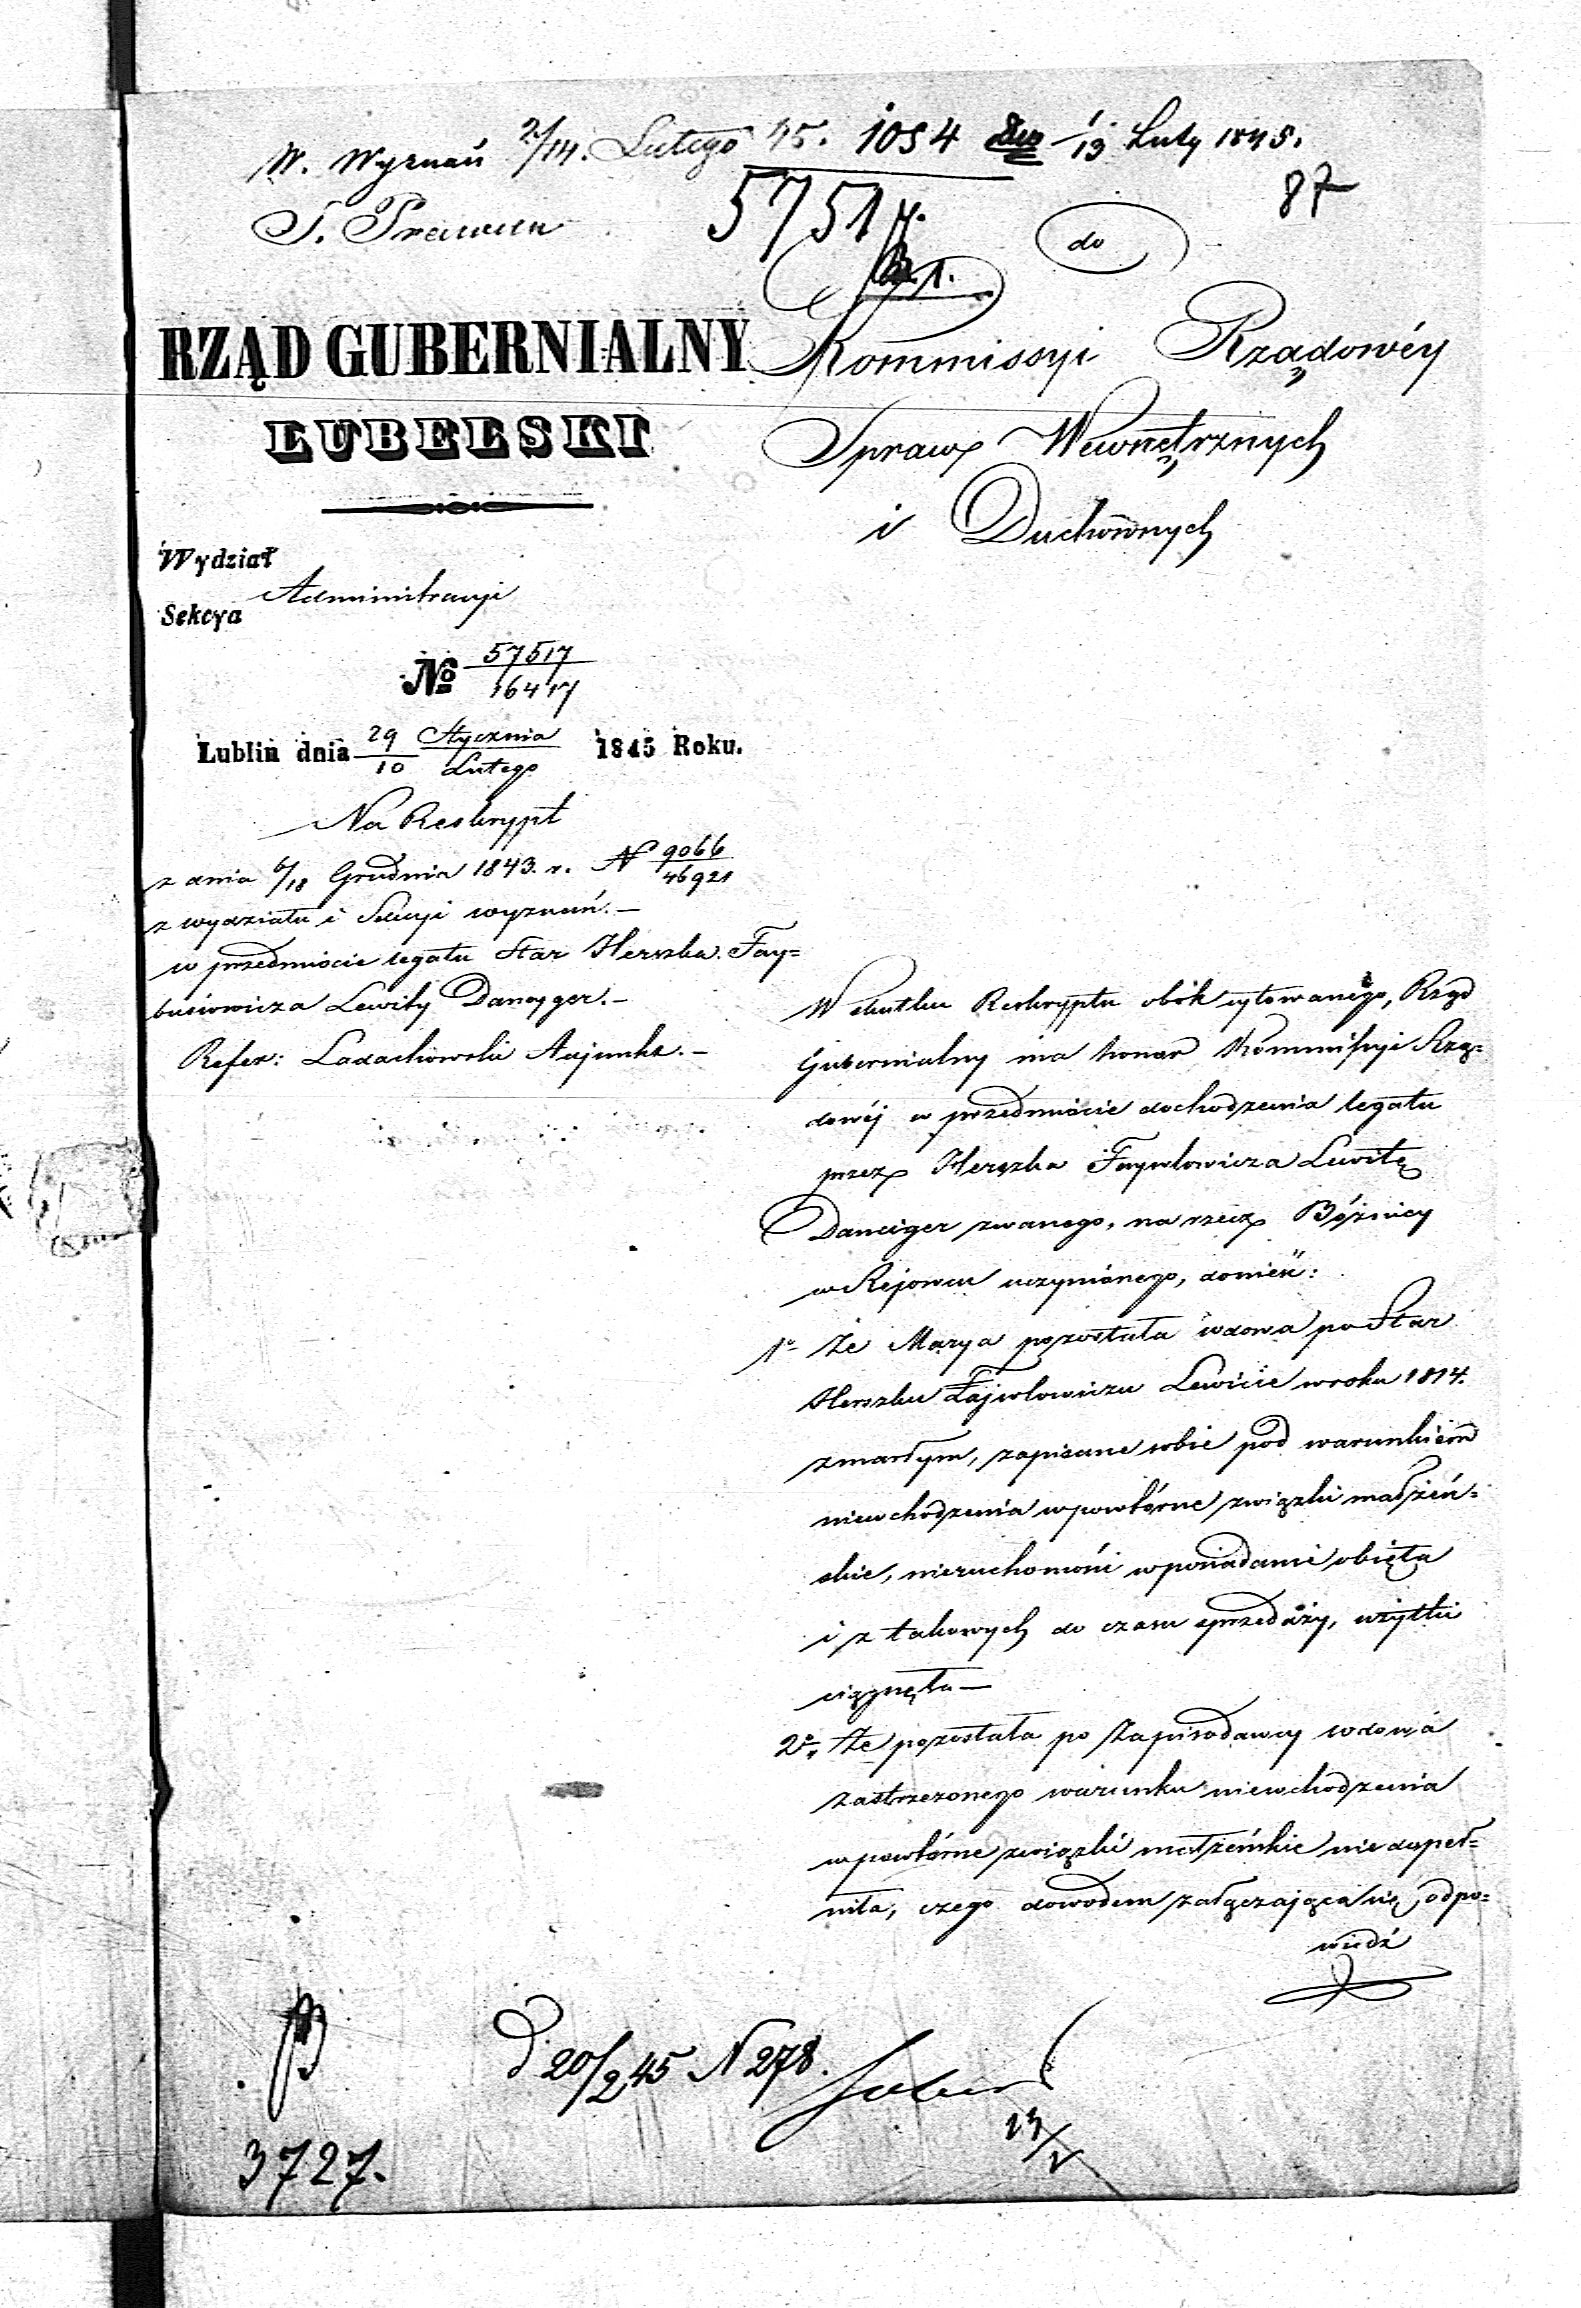 W. Wyznań 2/14. Lutego 45. 1054 13 Luty 1845.
S. Prawna 5751 87
do
RZĄD GUBERNIALNY
LUBELSKI
Kommissyi Rządowéy
Spraw Wewnętrznych
i Duchownych
Wydział
Administracyi
Sekcya
№ 57517
16417
Lublin dnia 29 Stycznia 1845 Roku.
10 Lutego
Na Reskrypt
z dnia 6/18 Grudnia 1843. r. N 9066
46921
z wydziału i Sekcyi wyznań. —
w przedmiocie legatu Star Herszka Fay=
busiowicza Lewity Dancyger. —
Refer: Ladachowski Adjunkt. —
W skutku Reskryptu obok cytowanego, Rząd
Gubernialny ma honor Kommissyi Rzą=
dowéj w przedmiocie dochodzenia legatu
przez Herszka Faywlowicza Lewitę
Danciger zwanego, na rzecz Bóżnicy
w Rejowcu uczynionego, donieść:
1o Że Marya pozostała wdowa po Star
Herszku Fajwlowiczu Lewicie w roku 1814.
zmarłym, zapisane sobie pod warunkiem
niewchodzenia w powtórne związki małżeń=
skie, nieruchomości w posiadanie objęła
i z takowych do czasu sprzedaży, użytki
ciągnęła —
2o, Że pozostała po Zapisodawcy wdowa
zastrzeżonego warunku niewchodzenia
w powtórne związki małżeńskie niedopeł=
niła, czego dowodem załączająca się odpo=
wiedź
d 20/2 45 N 278.
3727.